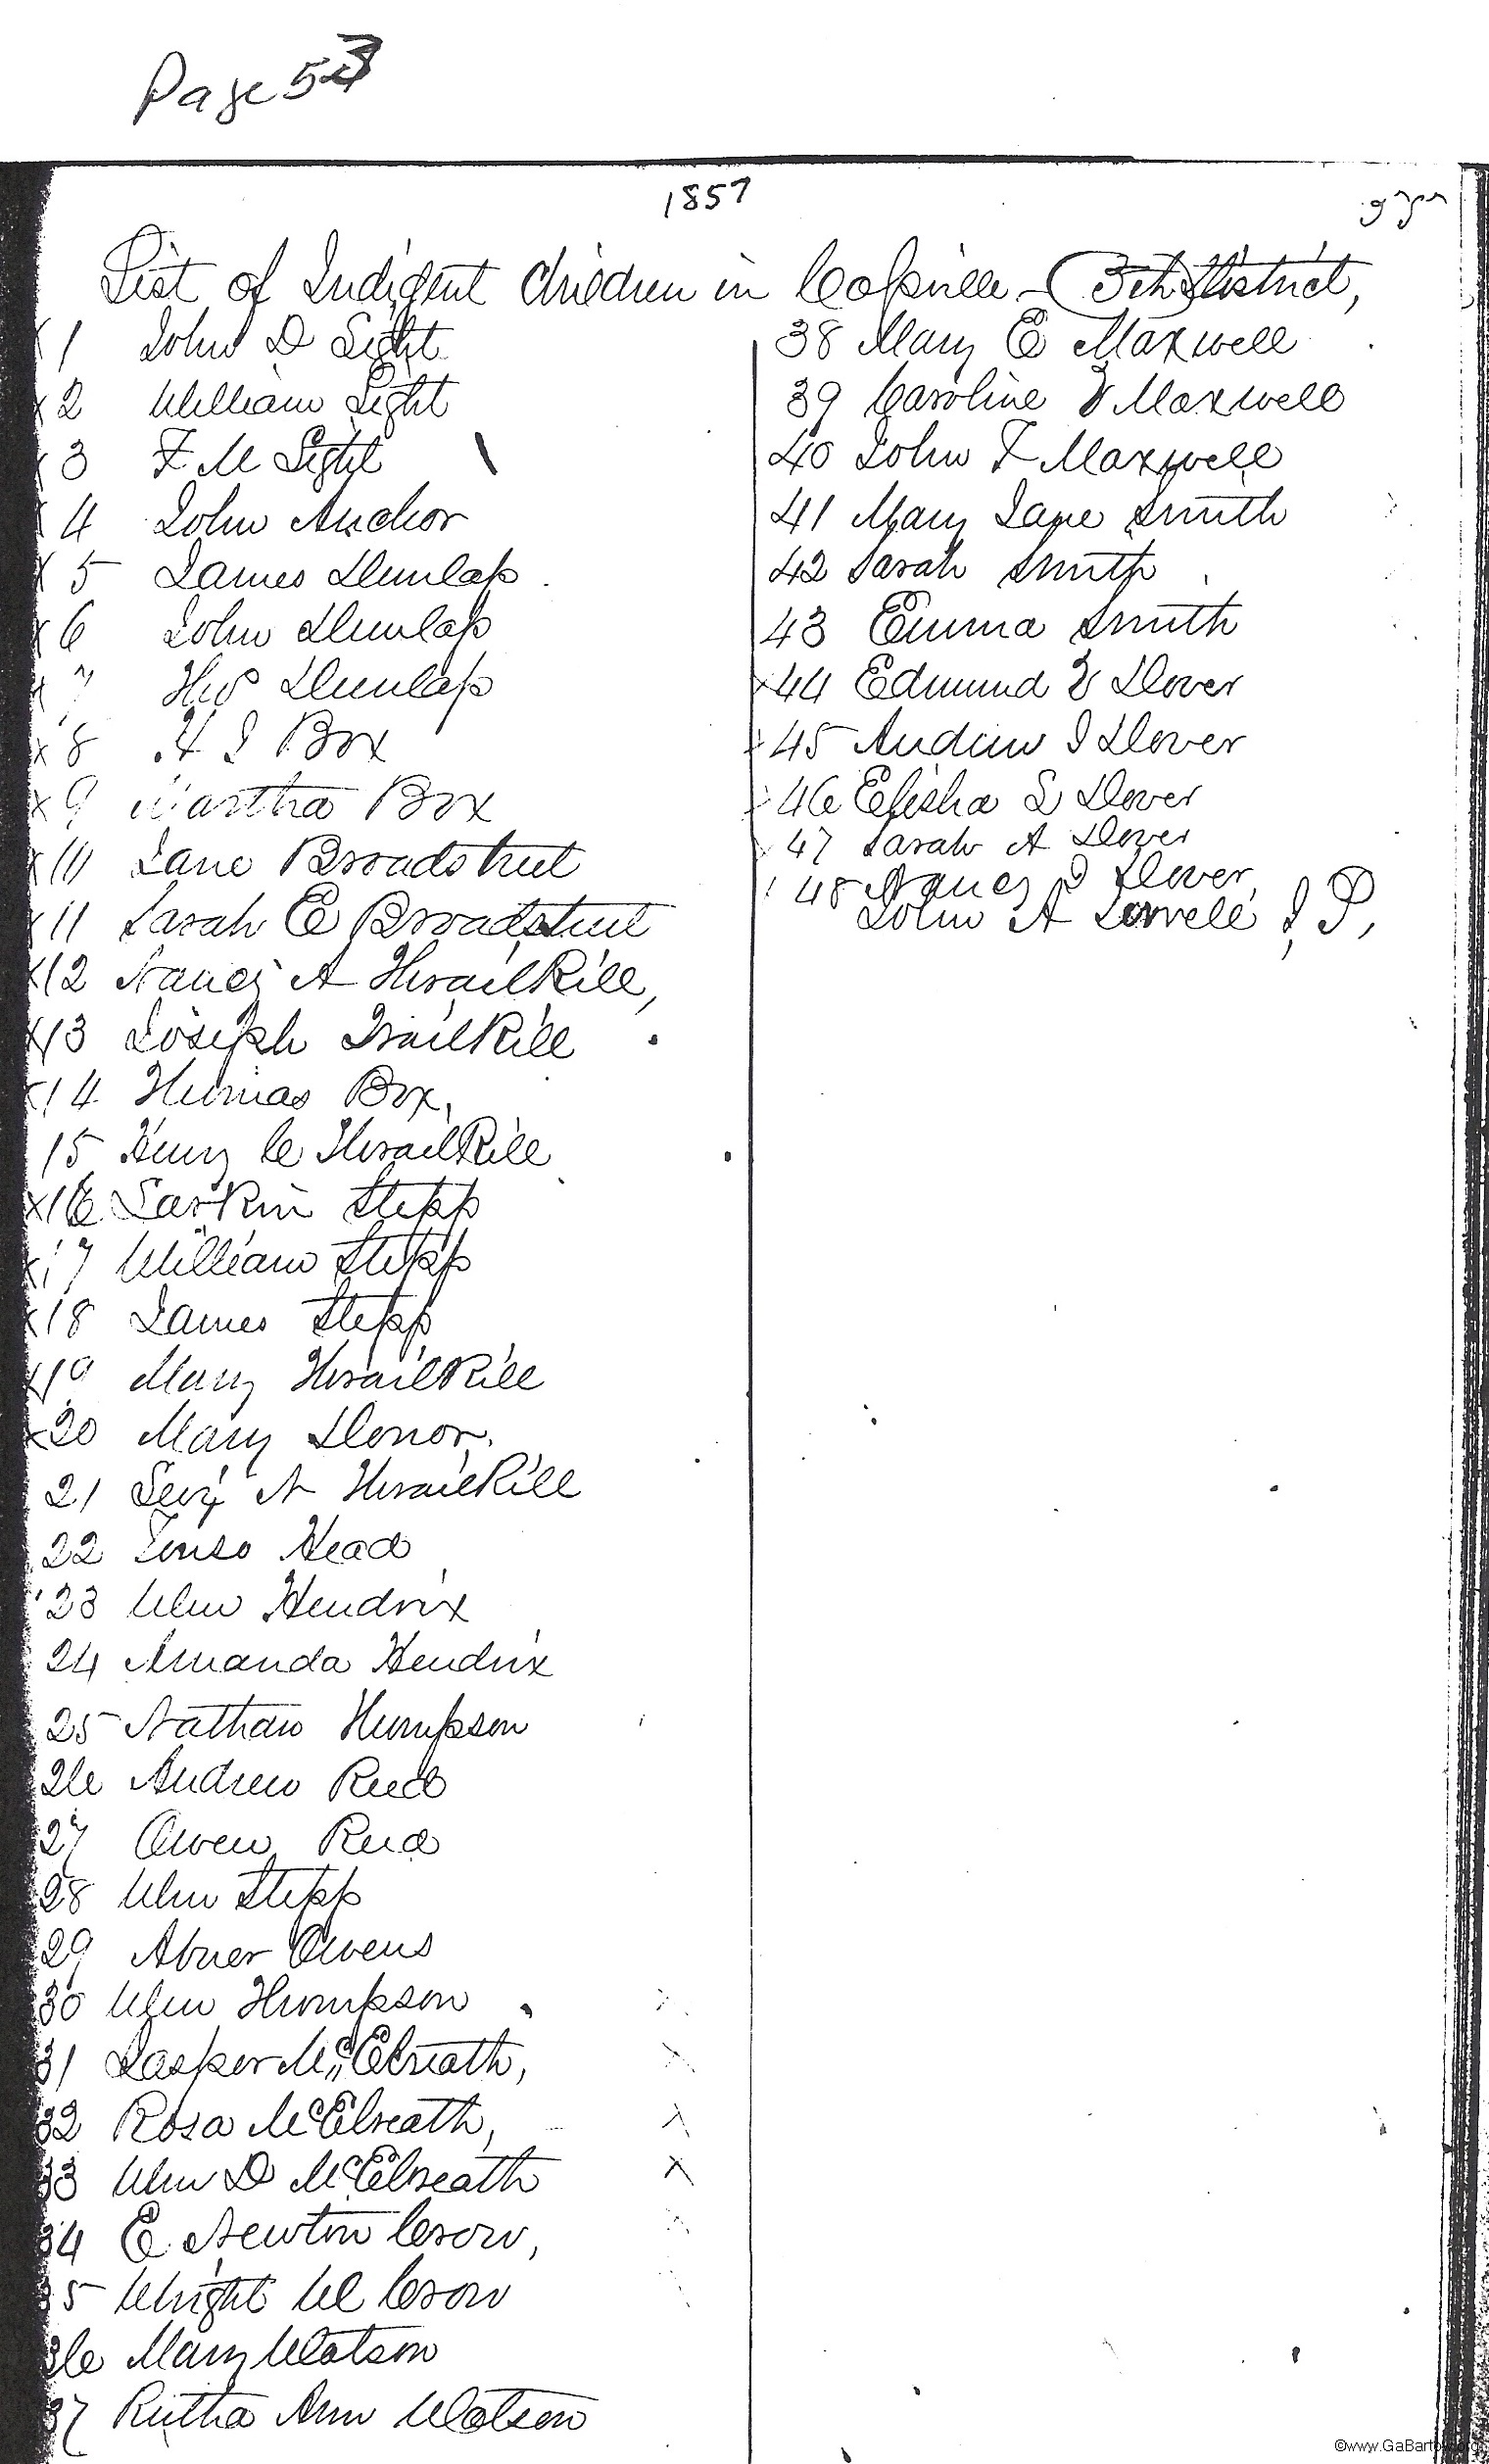 Page 53
1857
List of Indigent Children in Caſsville 5th District,
x 1 John D Light
x 2 William Light
x 3 F M Light
x 4 John Anchor
x 5 James Dunlap
x 6 John Dunlap
x 7 Dunlap
x 8 H J Box
x 9 Martha Box
x 10 Jane Broadstreet
x 11 Sarah E Broadstreet
x 12 Nancy A Thrailkill,
x 13 Joseph Trailkill
x 14 Thomas Box,
15 Henry C Thrailkill
x 16 Larkin Stepp
x 17 William Stepp
x 18 James Stepp
x 19 Mary Thrailkill
x 20 Mary Donor
21 Levy A Thrailkill
22 Head
23 Wm Hendrix
24 Amanda Hendrix
25 Nathan Thompson
26 Andrew Reed
27 Owen Reed
28 Wm Stepp
29 Abner Owens
30 Wm Thompson
31 Jasper McElreath,
32 Rosa McElreath,
33 Wm D McElreath
34 E Newton Crow,
35 Wright W Crow
36 Mary Watson
37 Rutha Ann Watson
38 Mary E Maxwell
39 Caroline V Maxwell
40 John F Maxwell
41 Mary Jane Smith
42 Sarah Smith
43 Emma Smith
x 44 Edmund V Dover
x 45 Andrew J Dover
46 Elisha L Dover
47 Sarah A Dover
48 Nancy J Dover
John A Terrell J P,
©www.GaBartow.org